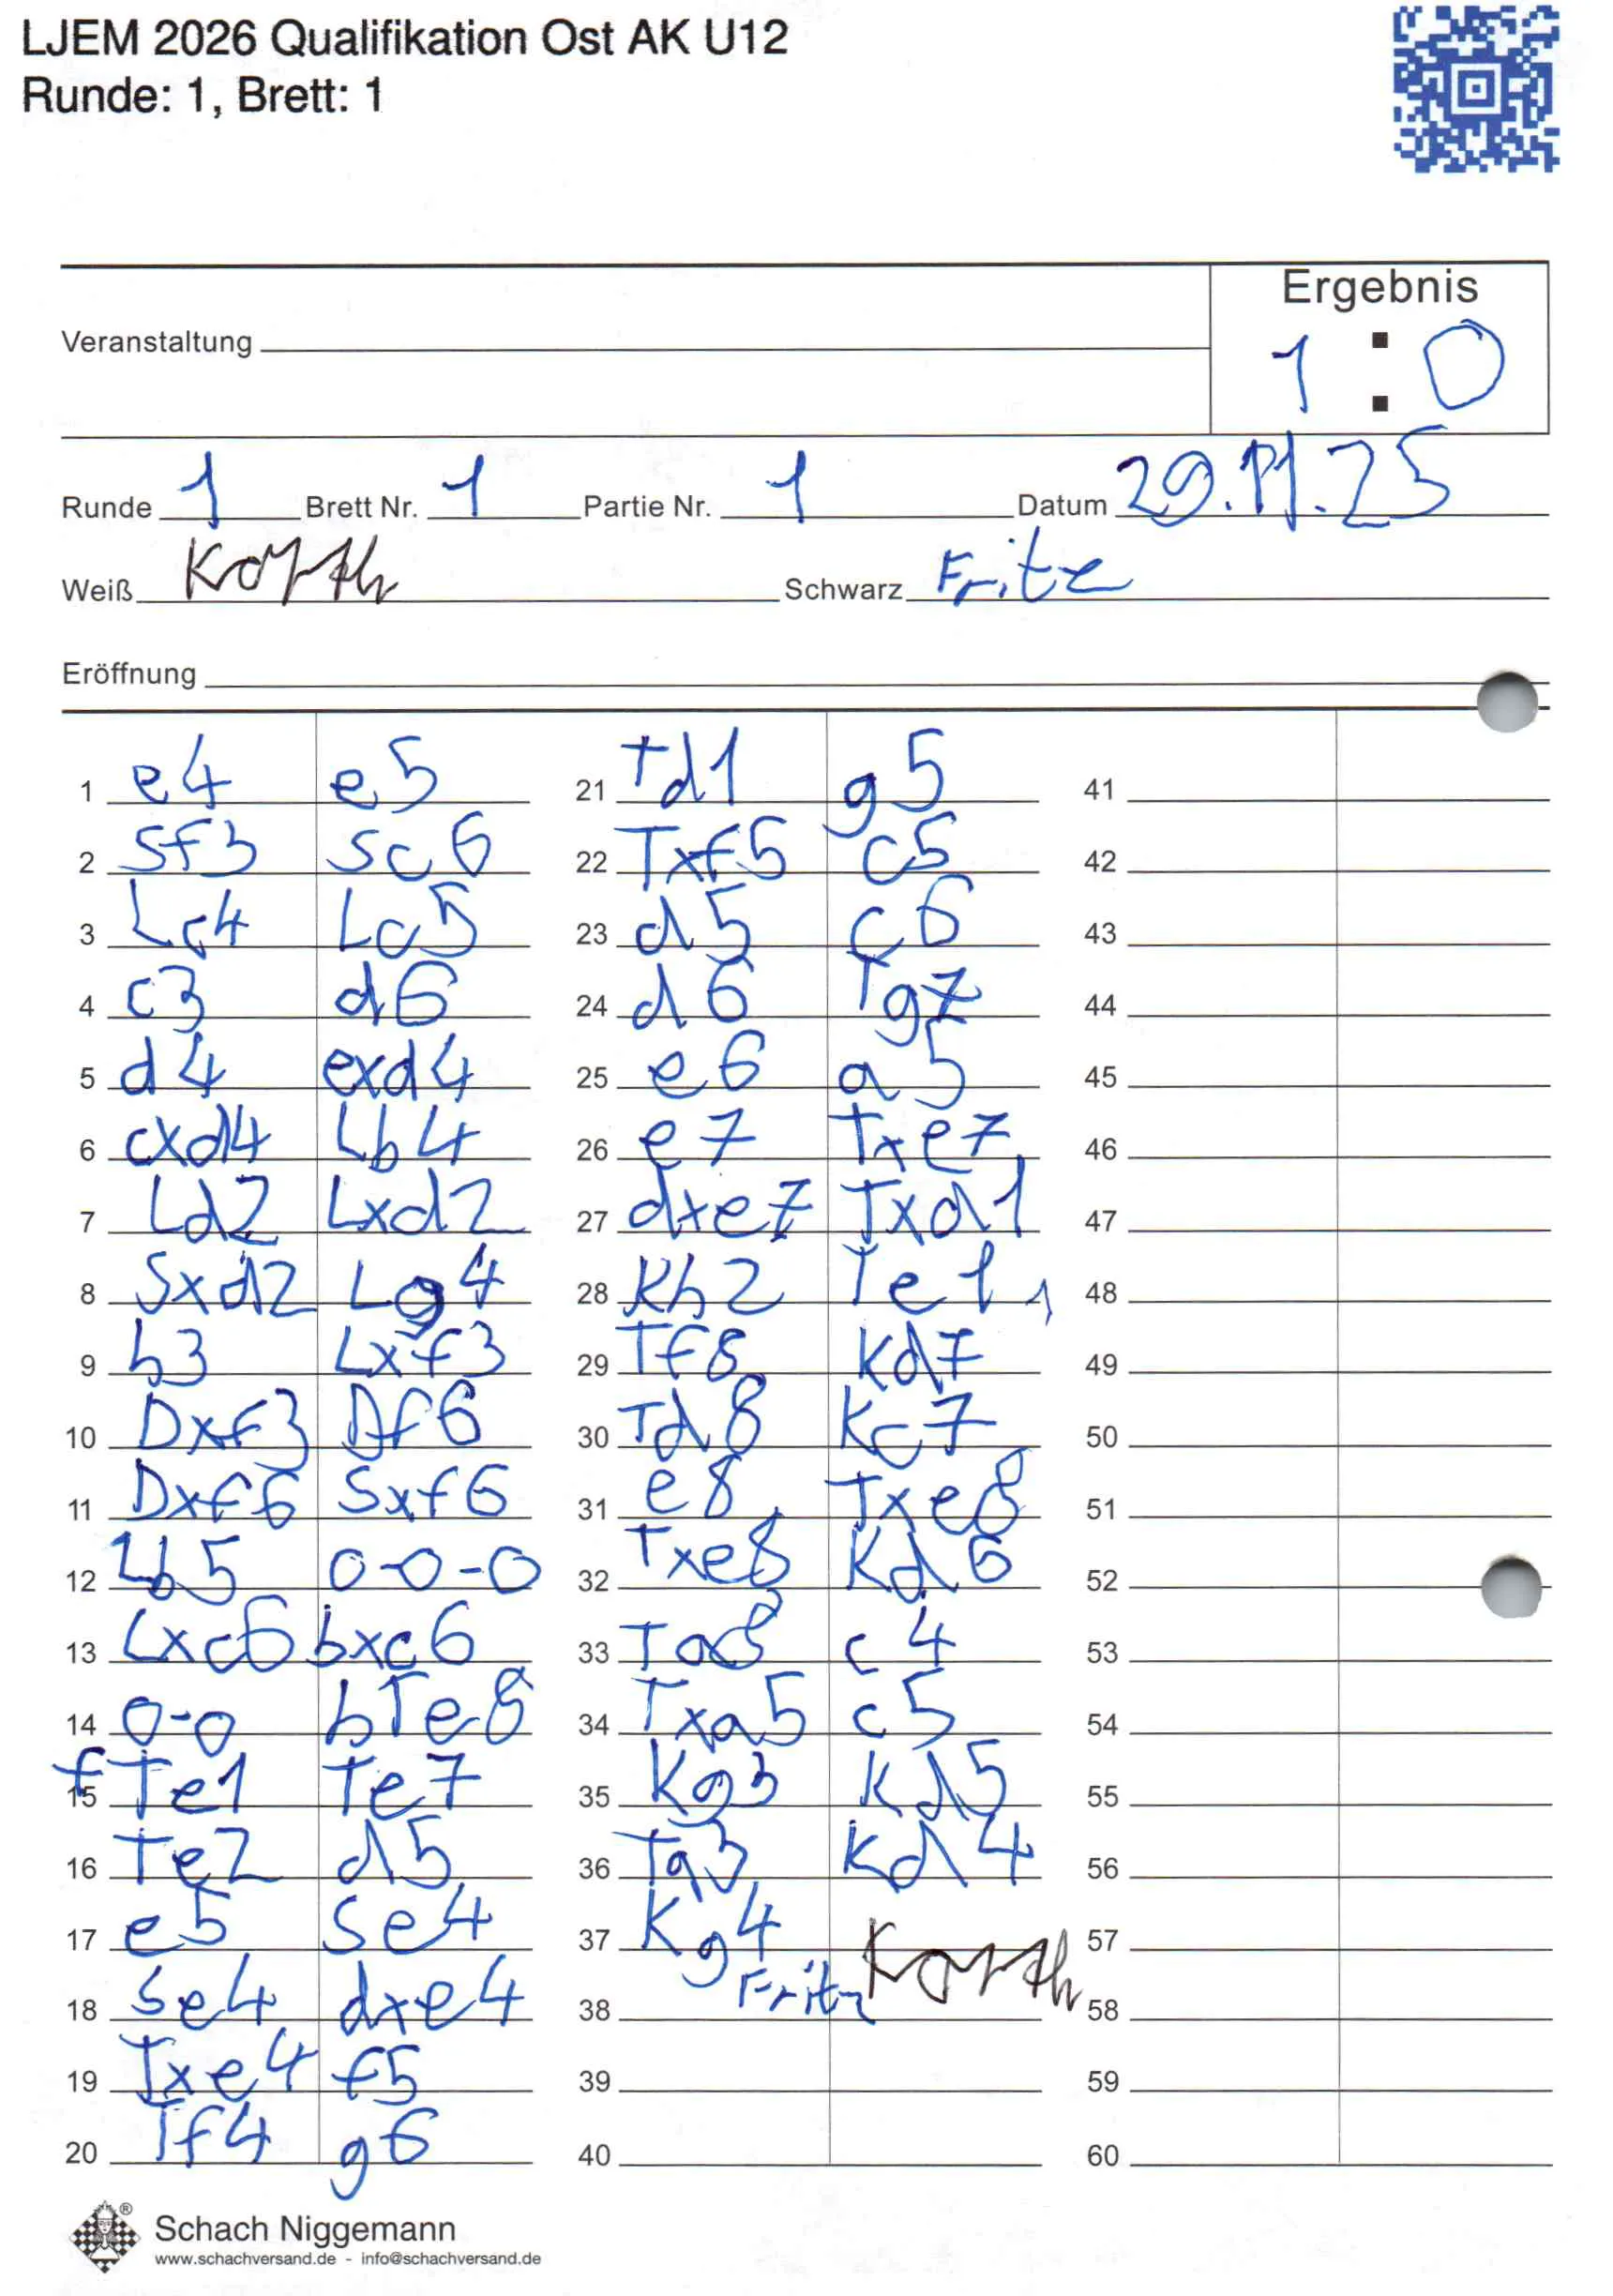 LJEM 2026 Qualifikation Ost AK U12
Runde: 1, Brett: 1
Ergebnis
1 : 0
Veranstaltung
Runde 1 Brett Nr. 1 Partie Nr. 1 Datum 29.11.25
Weiß Korth Schwarz Fritz
Eröffnung
1 e4 e5
2 Sf3 Sc6
3 Lc4 Lc5
4 c3 d6
5 d4 exd4
6 cxd4 Lb4
7 Ld2 Lxd2
8 Sxd2 Lg4
9 h3 Lxf3
10 Dxf3 Df6
11 Dxf6 Sxf6
12 Lb5 0-0-0
13 Lxc6 bxc6
14 0-0 hTe8
15 fTe1 Te7
16 Te2 d5
17 e5 Se4
18 Se4 dxe4
19 Txe4 f5
20 Tf4 g6
21 Td1 g5
22 Txf5 c5
23 d5 c6
24 d6 Tg7
25 e6 a5
26 e7 Txe7
27 dxe7 Txd1
28 Kh2 Te1
29 Tf8 Kd7
30 Td8 Kc7
31 e8 Txe8
32 Txe8 Kd6
33 Ta8 c4
34 Txa5 c5
35 Kg3 Kd5
36 Ta3 Kd4
37 Kg4
Fritz Korth
38
39
40
41
42
43
44
45
46
47
48
49
50
51
52
53
54
55
56
57
58
59
60
Schach Niggemann
www.schachversand.de - info@schachversand.de